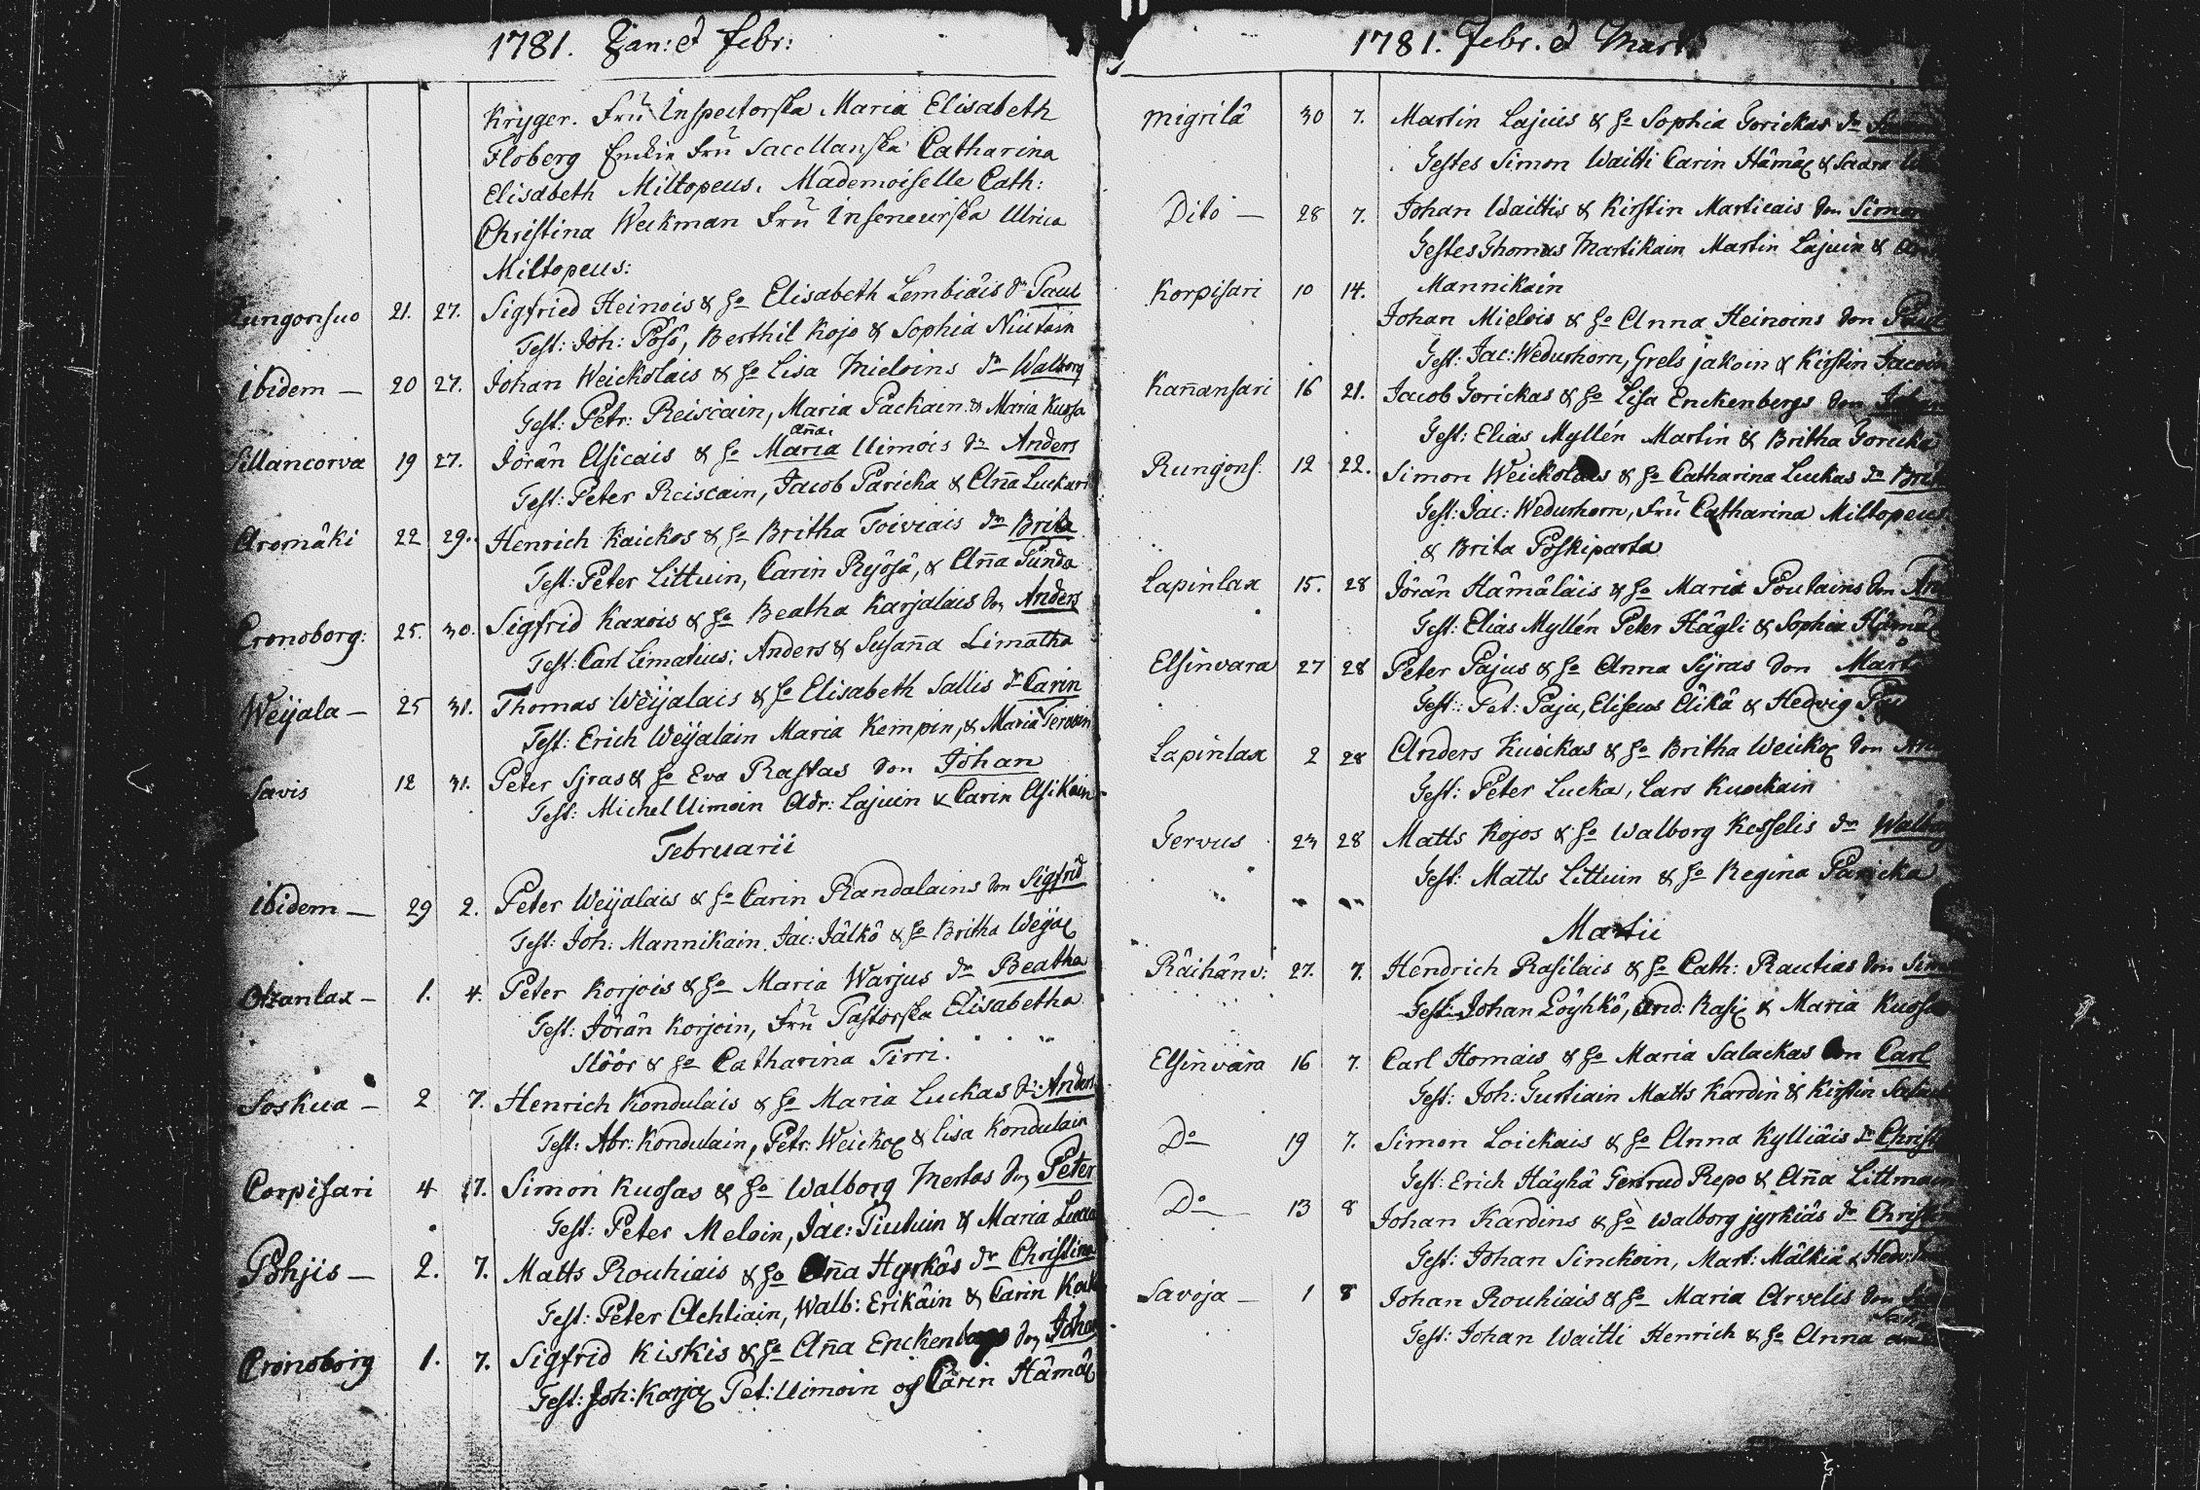 1781. Jan: et Febr:
Kryger. Fru Inspectorska Maria Elisabeth
Floberg Enckia Fru Sacellanska Catharina
Elisabeth Miltopeus. Mademoiselle Cath:
Christina Weckman Fru Inseneurska Ulrica
Miltopeus:
21. 27. Sigfried Heinois & H:o Elisabeth Lembiäis dr Paul
Test: Joh: Posò, Berthil Kojo & Sophia Niutain
ibidem — 20 27. Johan Weickolais & H:o Lisa Mieloins dr Walborg
Test: Petr: Reiscain, Maria Packain & Maria Kuosa
Aña
Sillancorva 19 27. Jörän Asicais & H:o Maria Uimois dr Anders
Test: Peter Reiscain, Jacob Paricka & Aña Luckari
Aromäki 22 29. Henrich Kaickos & H:o Britha Toiviais dr Brita
Test: Peter Littuin, Carin Ryösä, & Aña Punda
Cronoborg: 25. 30. Sigfrid Kaxois & H:o Beatha Karjalais don Anders
Test: Carl Limatius; Anders & Susaña Limatha
Weijala — 25 31. Thomas Weijalais & H:o Elisabeth Sallis dr Carin
Test: Erich Weijalain Maria Kempin, & Maria Tervoin
Savis 12 31. Peter Sjras & H:o Eva Rastas don Johan
Test: Michel Uimoin Adr: Lajuin & Carin Asikain
Februarii
ibidem — 29 2. Peter Weijalais & H:o Carin Randalains don Sigfrid
Test: Joh: Mannikain. Jac: Jälkö & H:o Britha Weija
Otzanlax — 1. 4. Peter Korjois & H:o Maria Warjus dr Beatha
Test: Jörän Korjoin, Fru Pastorska Elisabetha
Stöör & H:o Catharina Tirri.
Soskua — 2 7. Henrich Kondulais & H:o Maria Luckas dr Anders
Test: Abr: Kondulain, Petr: Weicko & Lisa Kondulain
Corpisari 4 7. Simon Kuosas & H:o Walborg Mertas don Peter
Test: Peter Meloin, Jac: Piutuin & Maria
Pohjis — 2. 7. Matts Rouhiais & H:o Aña Hyrkäs dr Christina
Test: Peter Achtiain, Walb: Erikäin & Carin
Cronoborg 1. 7. Sigfrid Kiskis & H:o Aña Enckenbergs don Johan
Test: Joh: Karja Pet: Uimoin og Carin Hämä
1781. Febr. et Martii
Migrilä 30 7. Martin Lajuis & H:o Sophia Gorickas dr
Testes Simon Waitti Carin Hämä & Saara
Dito — 28 7. Johan Waittis & Kirstin Marticais don Simon
Testes Thomas Martikain Martin Lajuin &
Mannikain
Korpisari 10 14. Johan Mielois & H:o Anna Heinoins don
Test: Jac: Wedurhorn, Grels Jakoin & Kirstin
Kañansari 16 21. Jacob Gorickas & H:o Lisa Enckenbergs don
Test: Elias Myllén Martin & Britha Goricka
Rungons. 12 22. Simon Weickolais & H:o Catharina Luckas dr
Test: Jac: Wedurhorn, Fru Catharina Miltopeus
& Brita Poskiparta
Lapinlax 15. 28 Jörän Hämäläis & H:o Maria Poutains don
Test: Elias Myllén Peter Hägli & Sophia
Elsinvara 27 28 Peter Pajus & H:o Anna Syras don
Test: Pet: Paju, Eliseus Äikä & Hedvig
Lapinlax 2 28 Anders Kuickas & H:o Britha Weicko don
Test: Peter Lucka, Lars Kuockain
Tervus 23 28 Matts Kojos & H:o Walborg Kesselis dr Walborg
Test: Matts Littuin & H:o Regina Paricka
Martii
Räihänv: 27. 7. Hendrich Rasilais & H:o Cath: Rautias don
Test: Johan Löyhkö, And: Rasi & Maria
Elsinvara 16 7. Carl Homais & H:o Maria Salackas don Carl
Test: Joh: Turtiain Matts Kardin & Kirstin
Do 19 7. Simon Loickais & H:o Anna Kylliäis dr
Test: Erich Häyhä Gertrud Repo & Aña
Do 13 8 Johan Kardins & H:o Walborg Jyrkiäs dr
Test: Johan Sinckoin, Mart: Mälkiä &
Savoja — 1 8 Johan Rouhiais & H:o Maria Arvelis don
Test: Johan Waitti Henrich & H:o Anna